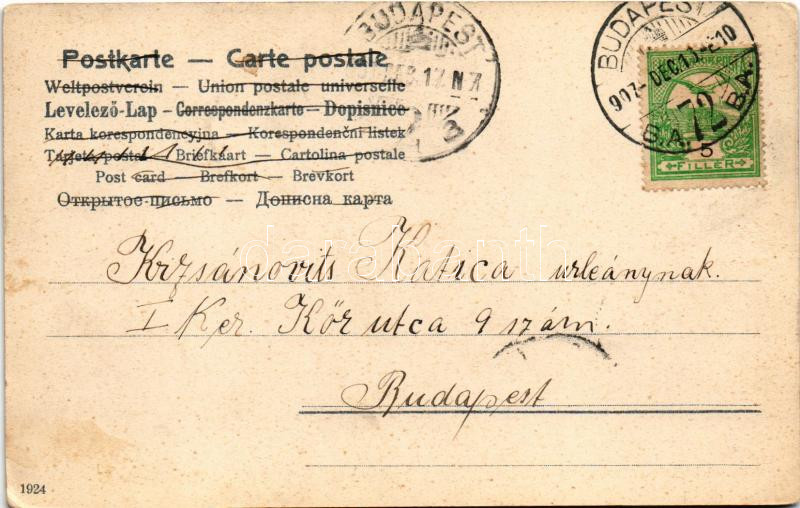 Postkarte — Carte postale
Weltpostverein — Union postale universelle
Levelező-Lap — Correspondenzkarte — Dopisnice
Karta korespondencyjna — Korespondenční listek
Tarjeta postal — Briefkaart — Cartolina postale
Post card — Brefkort — Brevkort
Открытое письмо — Дописна карта
BUDAPEST
BUDAPEST
907 DEC. 10
72
B.A. B.A.
5
FILLÉR
Krzsánovits Katica urleánynak.
I Ker. Kör utca 9 szám.
Budapest
1924
darabanth